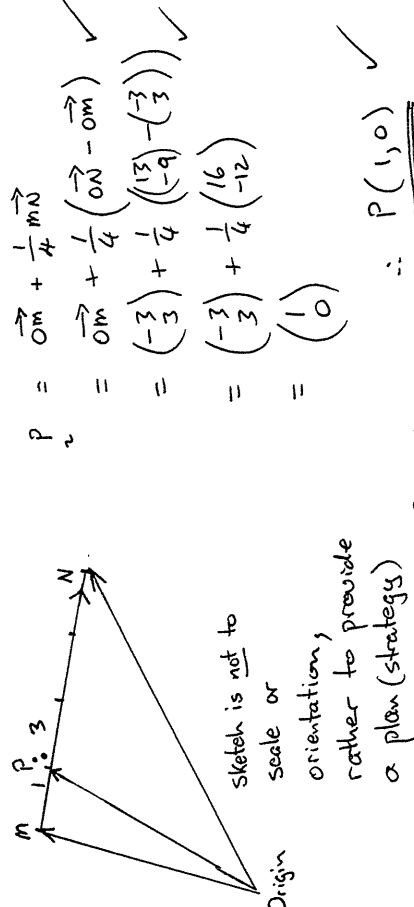 M
1 P : 3
N
Origin
sketch is not to
scale or
orientation,
rather to provide
a plan (strategy)
p = OM + 1/4 MN
~
= OM + 1/4 (ON - OM)
= (-3 3) + 1/4 ((13 -9) - (-3 3))
= (-3 3) + 1/4 (16 -12)
= (1 0)
∴ P(1,0)